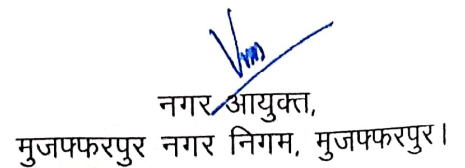 नगर आयुक्त,
मुजफ्फरपुर नगर निगम, मुजफ्फरपुर।